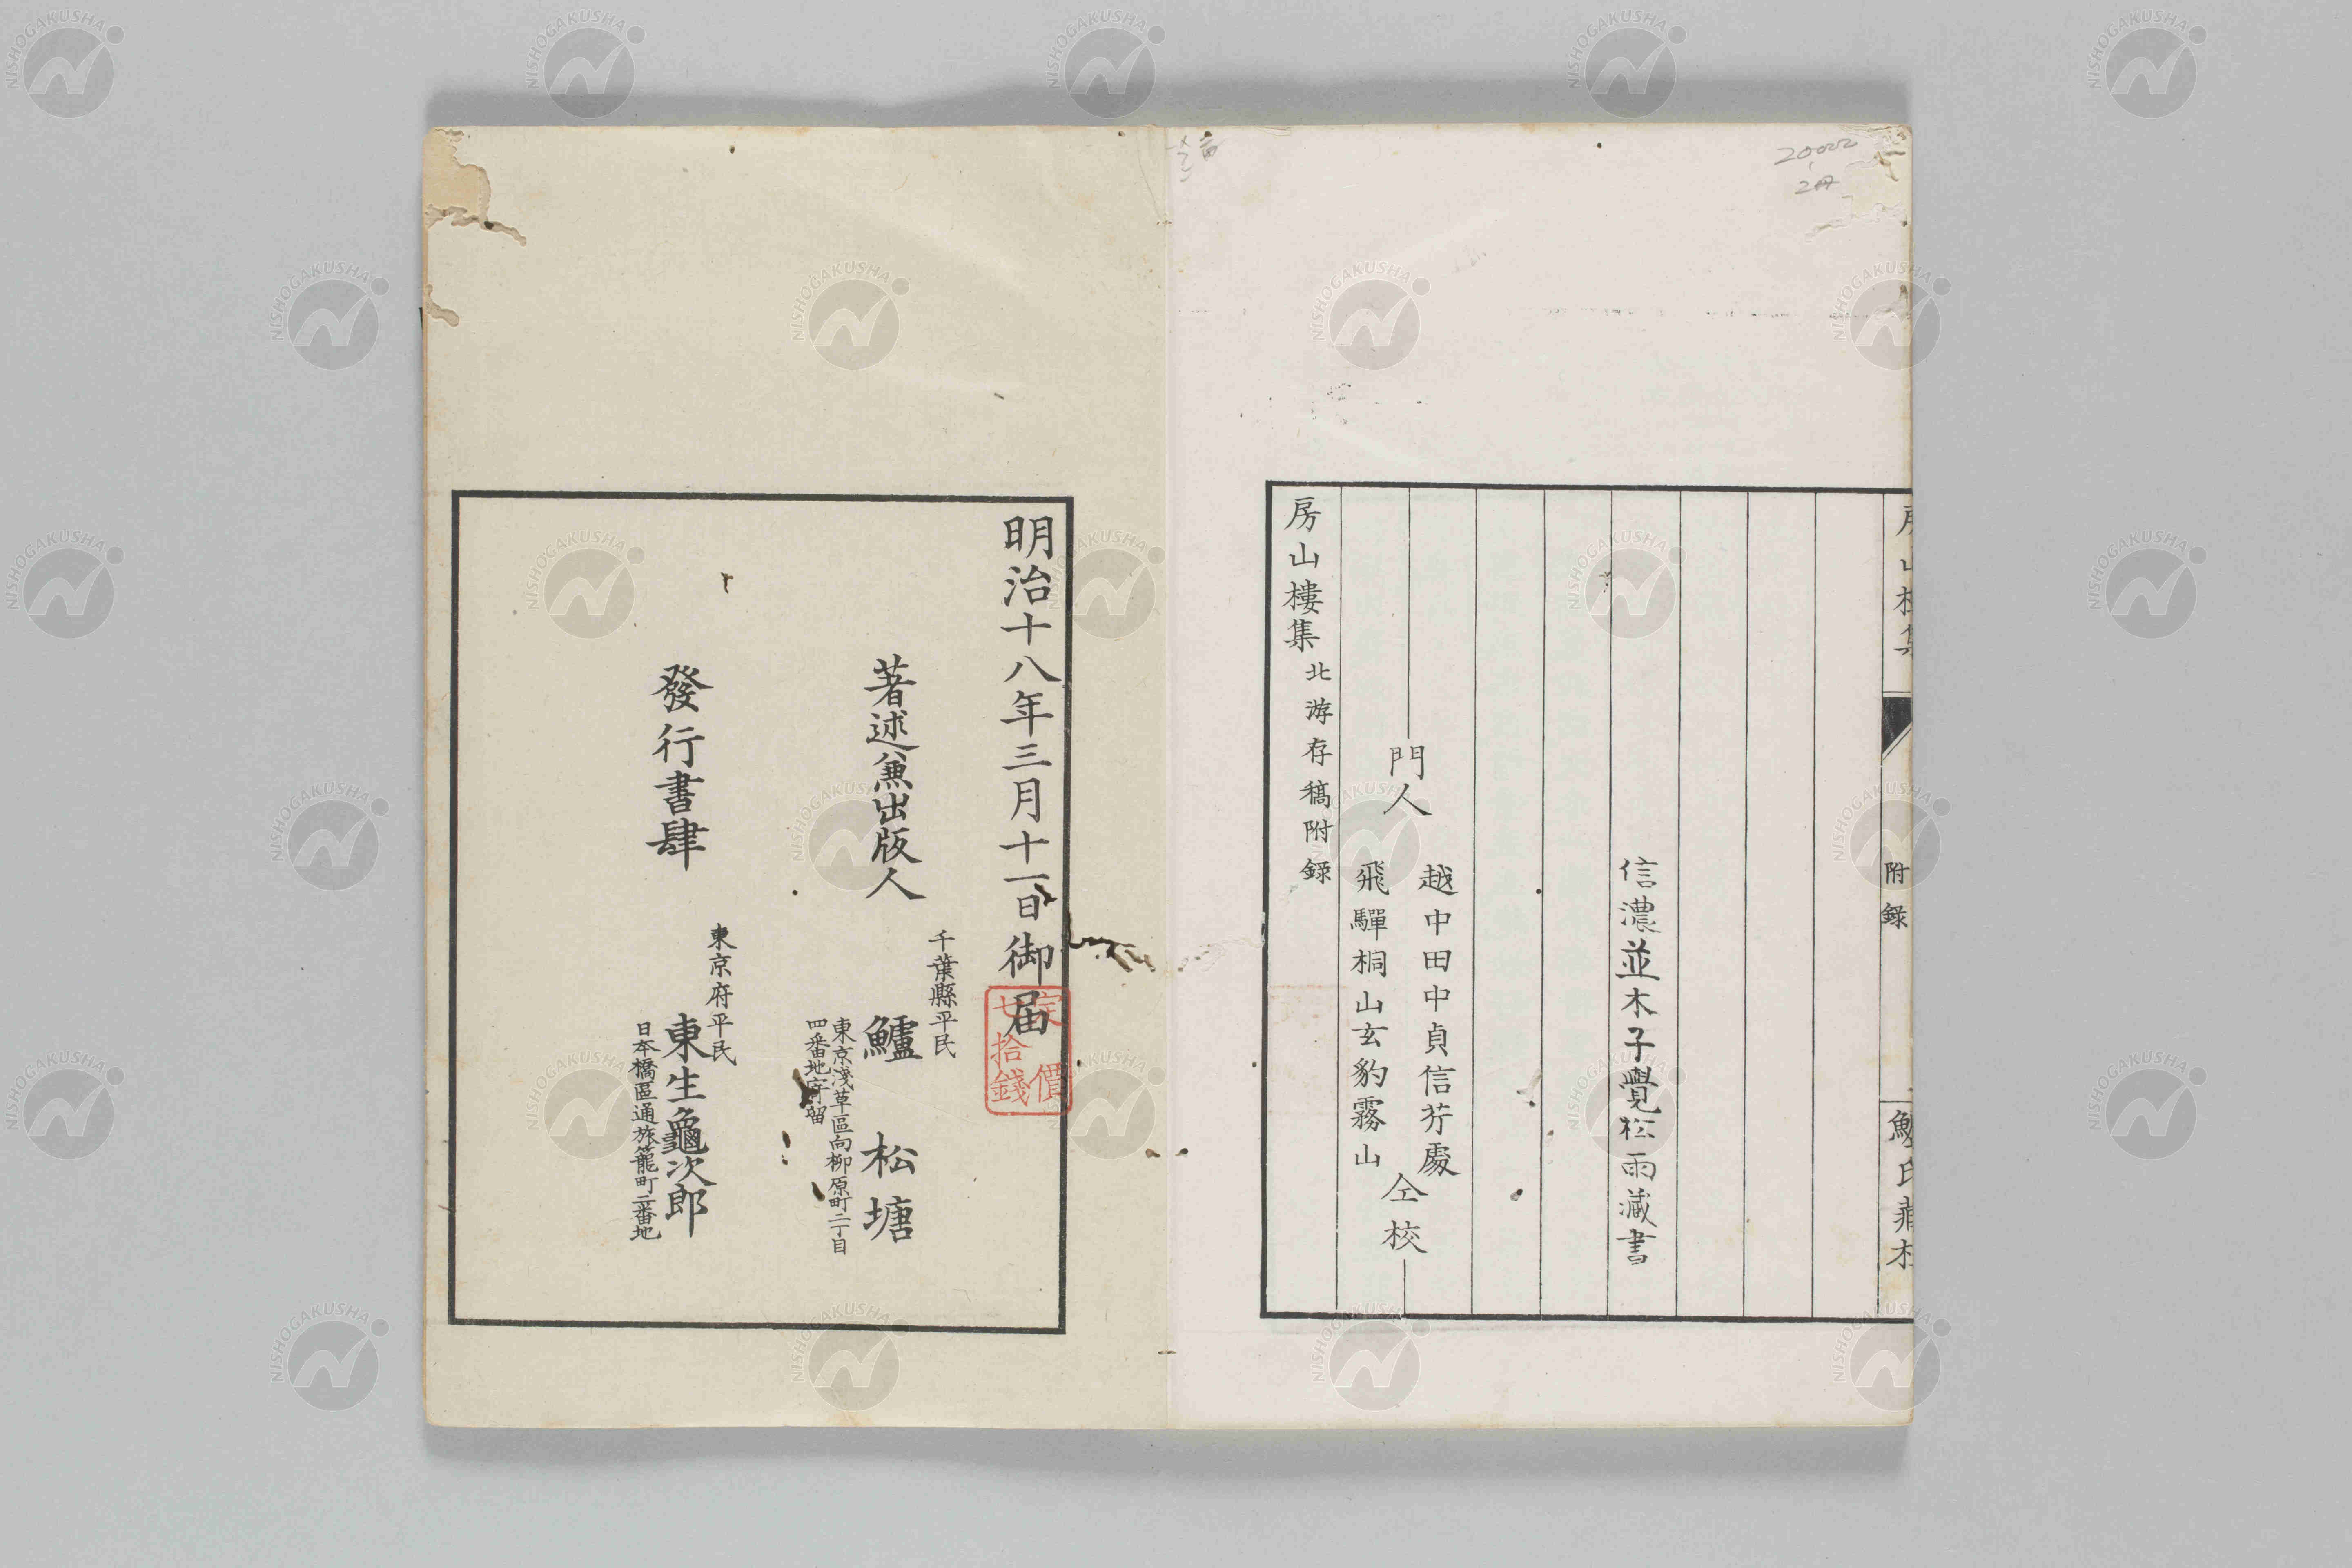 房山樓集
附錄
信濃並木子覺松雨藏書
門人
越中田中貞信芥處
飛驒桐山玄豹霧山
仝校
房山樓集北游存稿附録
明治十八年三月十一日御届
定價
七拾錢
著述兼出版人
千葉縣平民
鱸松塘
東京淺草區向柳原町二丁目
四番地寄留
發行書肆
東京府平民
東生龜次郎
日本橋區通旅籠町二番地
20000
2冊
NISHOGAKUSHA